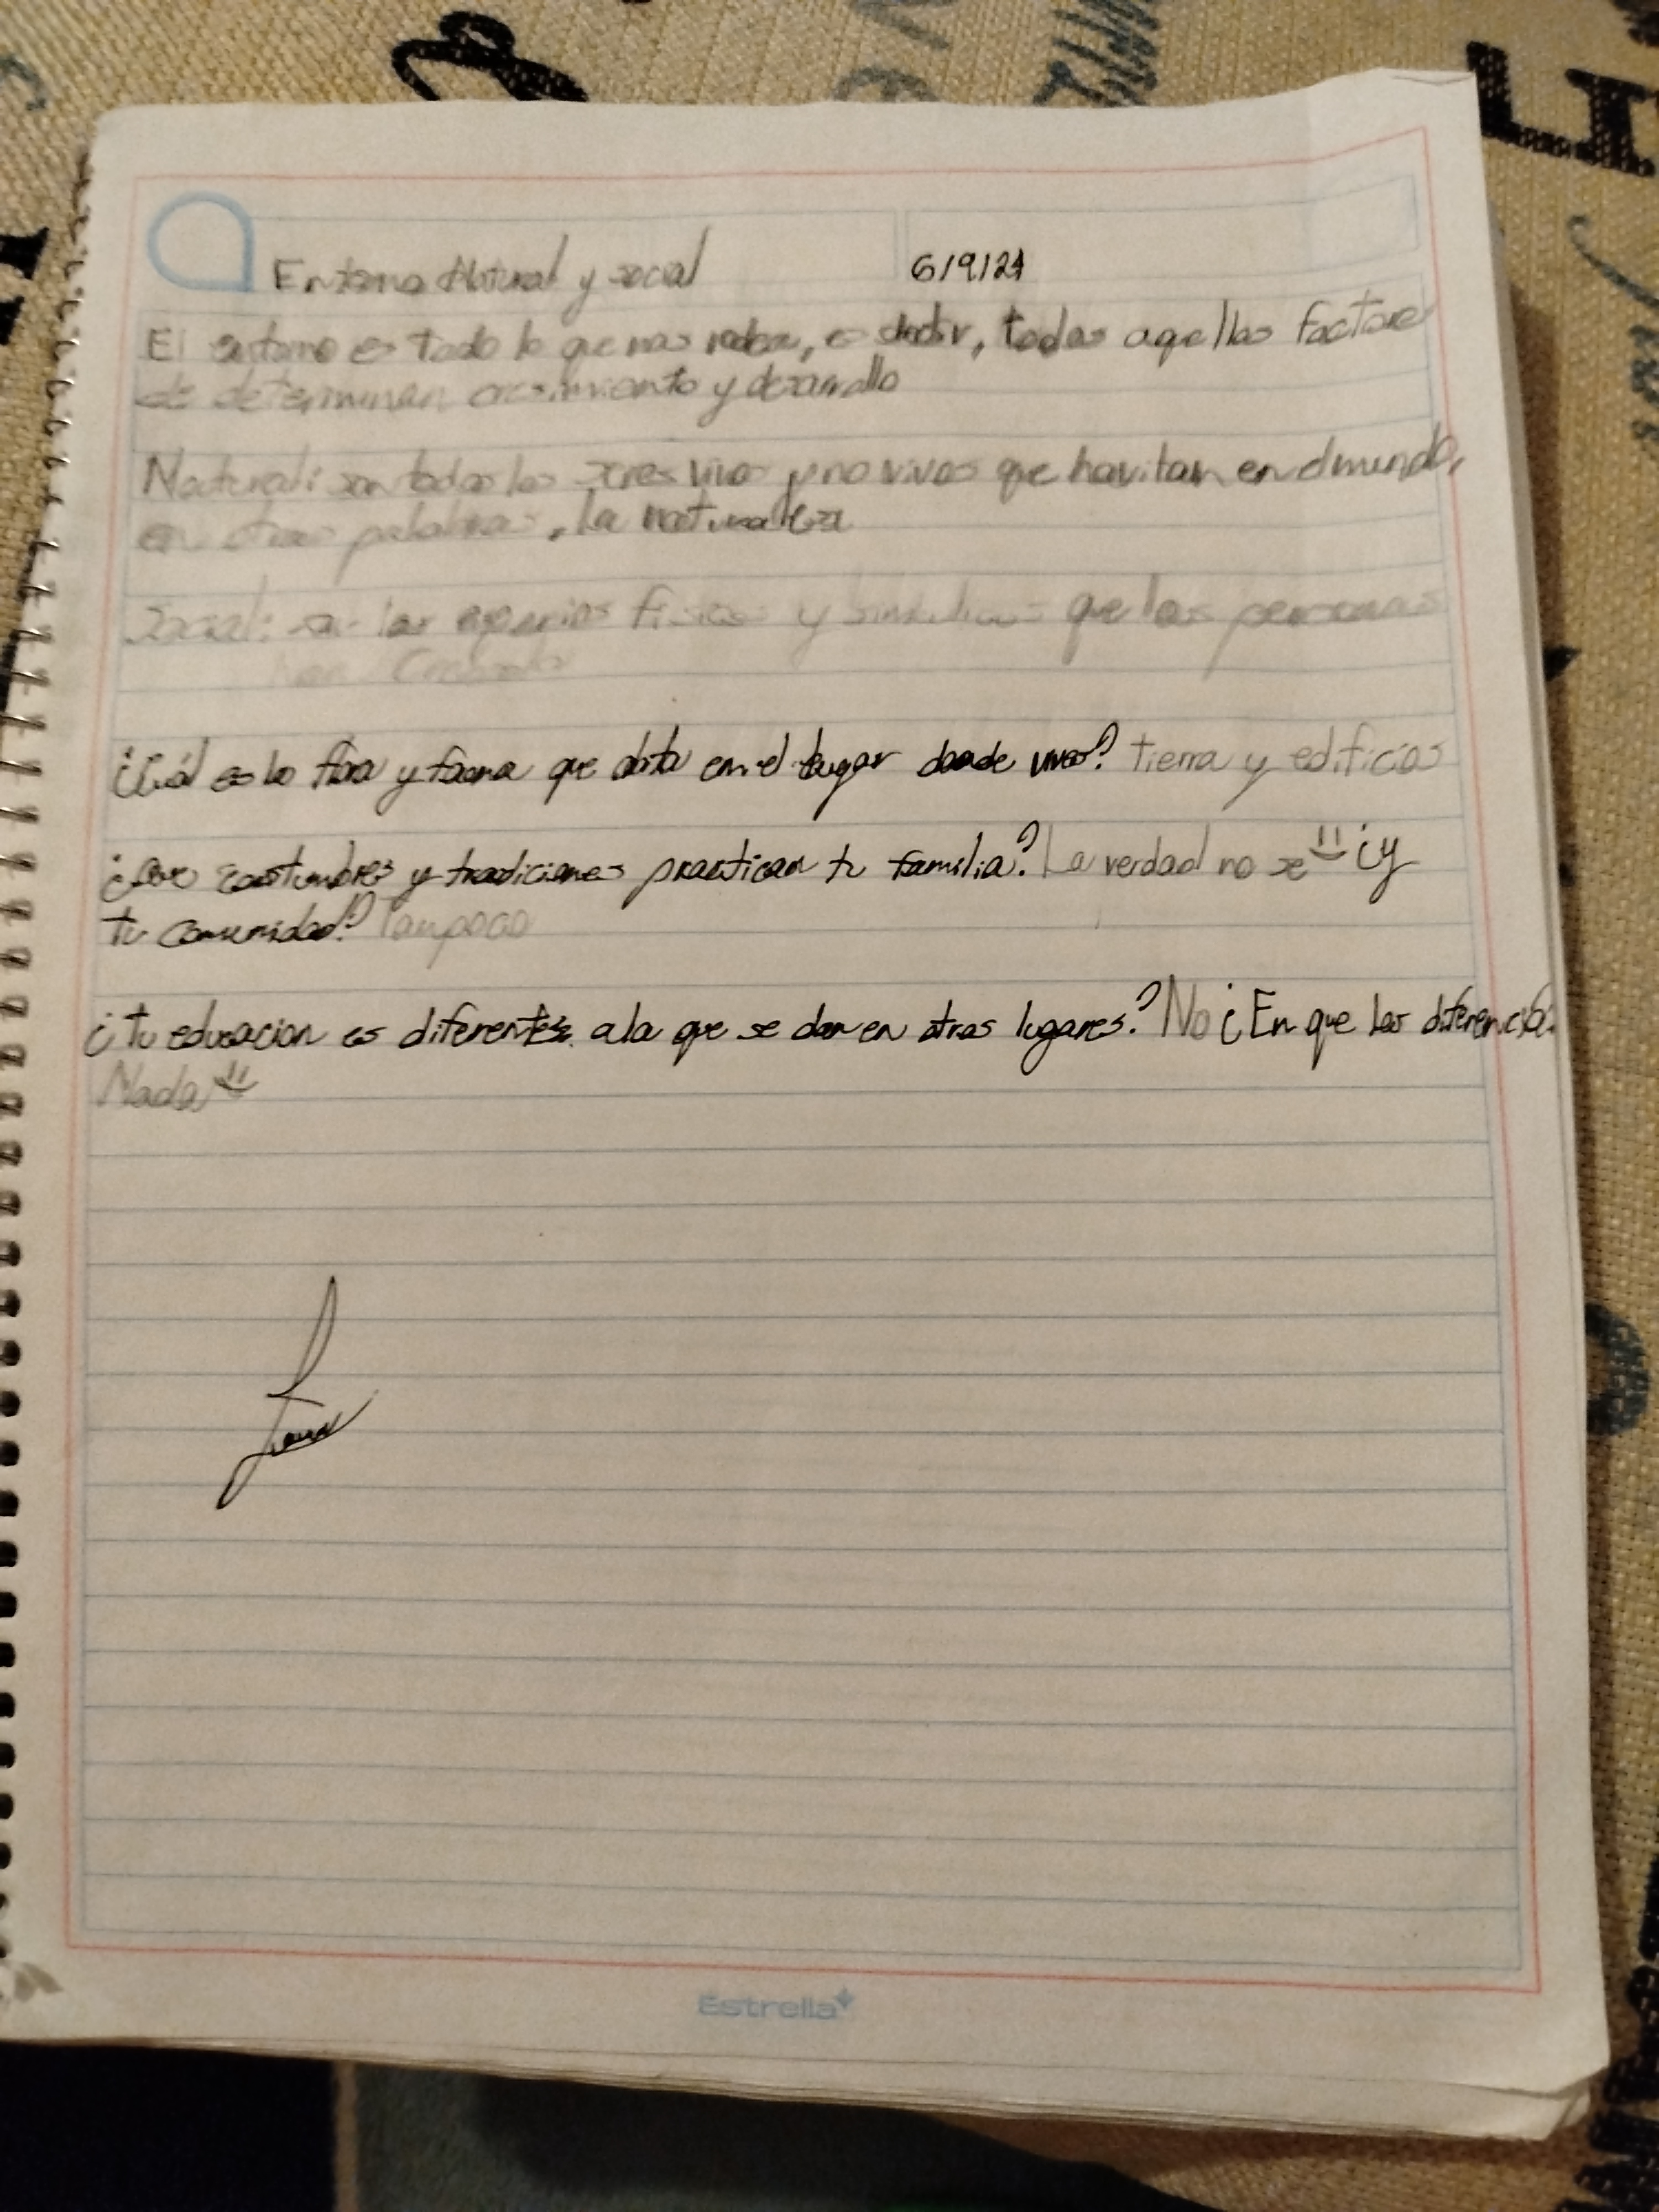 Entorno Natural y social 6/9/21
El entorno es todo lo que nos rodea, es decir, todos aquellos factores
de determinan crecimiento y desarrollo
Natural: son todos los seres vivos y no vivos que havitan en el mundo,
en otras palabras, la naturaleza
Social: son los fisicos y que las personas
han
¿Cuál es la flora y fauna que en el lugar donde vives? tierra y edificios
¿Que costumbres y tradiciones practican tu familia? La verdad no se ¿y
tu comunidad? Tampoco
¿tu educacion es diferentes a la que se dan en otros lugares? No ¿En que las diferencia?
Nada
Estrella